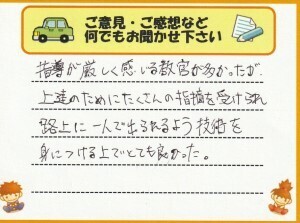 ご意見・ご感想など
何でもお聞かせ下さい
指導が厳しく感じる教官が多かったが、
上達のためにたくさんの指摘を受けられ
路上に一人で出られるよう技術を
身につける上でとても良かった。